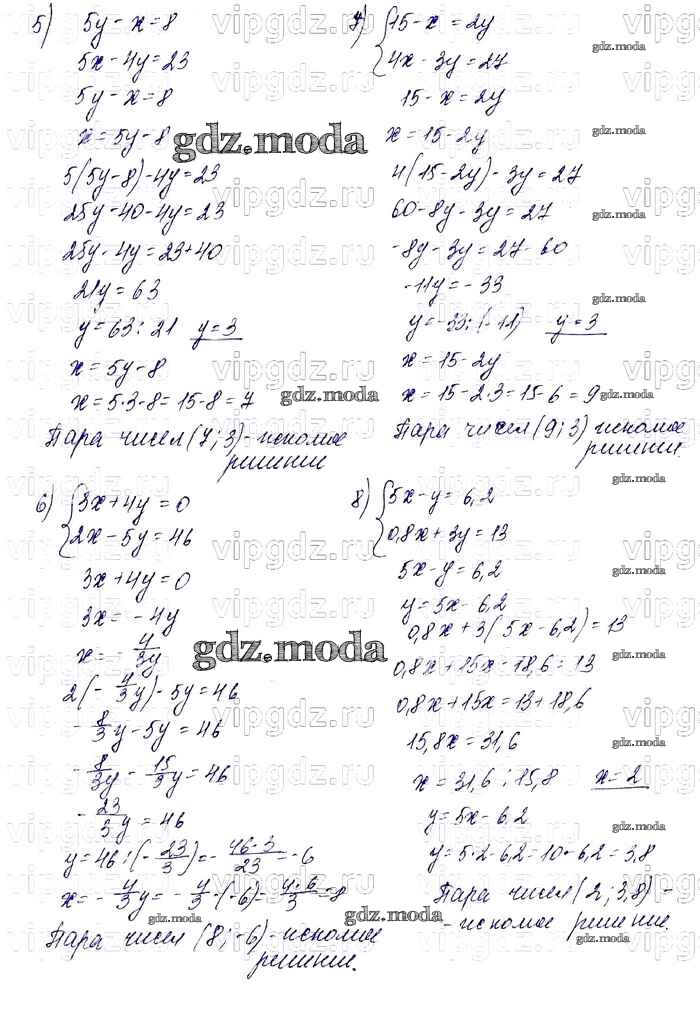 5) 5y - x = 8
5x - 4y = 23
5y - x = 8
x = 5y - 8
5(5y - 8) - 4y = 23
25y - 40 - 4y = 23
25y - 4y = 23 + 40
21y = 63
y = 63 : 21 y = 3
x = 5y - 8
x = 5·3 - 8 = 15 - 8 = 7
Пара чисел (7; 3) - искомое
решение
6) 3x + 4y = 0
2x - 5y = 46
3x + 4y = 0
3x = - 4y
x = - 4/3y
2(- 4/3y) - 5y = 46
- 8/3y - 5y = 46
- 8/3y - 15/3y = 46
- 23/3y = 46
y = 46 : (- 23/3) = - 46·3/23 = -6
x = - 4/3y = - 4/3·(-6) = 4·6/3 = 8
Пара чисел (8; -6) - искомое
решение.
7) 15 - x = 2y
4x - 3y = 27
15 - x = 2y
x = 15 - 2y
4(15 - 2y) - 3y = 27
60 - 8y - 3y = 27
-8y - 3y = 27 - 60
-11y = - 33
y = -33 : (-11) y = 3
x = 15 - 2y
x = 15 - 2·3 = 15 - 6 = 9
Пара чисел (9; 3) искомое
решение.
8) 5x - y = 6,2
0,8x + 3y = 13
5x - y = 6,2
y = 5x - 6,2
0,8x + 3(5x - 6,2) = 13
0,8x + 15x - 18,6 = 13
0,8x + 15x = 13 + 18,6
15,8x = 31,6
x = 31,6 : 15,8 x = 2
y = 5x - 6.2
y = 5·2 - 6,2 = 10 - 6,2 = 3,8
Пара чисел (2; 3,8) -
- искомое решение.
gdz.moda
vipgdz.ru